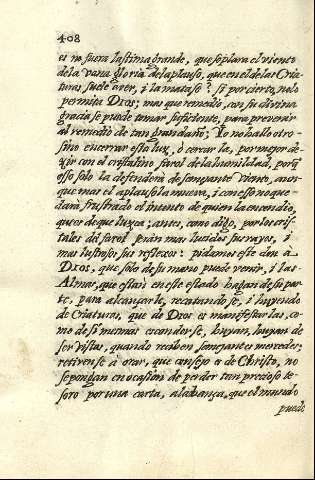 408
es no fuera lastima grande, que soplara el viento
de la vana gloria del aplauso, que en el de las Cria-
turas suele aver, i la matase? si por cierto, no lo
permita Dios; mas que remedio, con su divina
gracia se puede tomar suficiente, para prevenir
al remedio de tan gran daño; Yo no hallo otro-
sino encerrar esta luz, ò cercar la, por mejor de-
zir con el cristalino farol de la humildad, porq̃
esso solo la defenderà de semejante viento, aun-
que mas el aplauso la mueva, i con esso no que-
darà frustrado el intento de quien la encendio,
que es de que luzca; antes, como digo, por los cris-
tales del farol seràn mas lucidos sus rayos, i
mas lustrosos sus reflexos: pidamos este don à
Dios, que solo de su mano puede venir, i las
Almas, que estàn en este estado hagan de su par-
te, para alcançarle, recatando se, i huyendo
de Criaturas, que de Dios es manifestarlas, co-
mo de si mesmas esconderse, huyan, huyan de
ser vistas, quando reciben semejantes mercedes;
retirense à orar, que consejo es de Christo, no
se pongan en ocasion de perder tan precioso te-
soro por una corta, alabança, que el mundo
puede